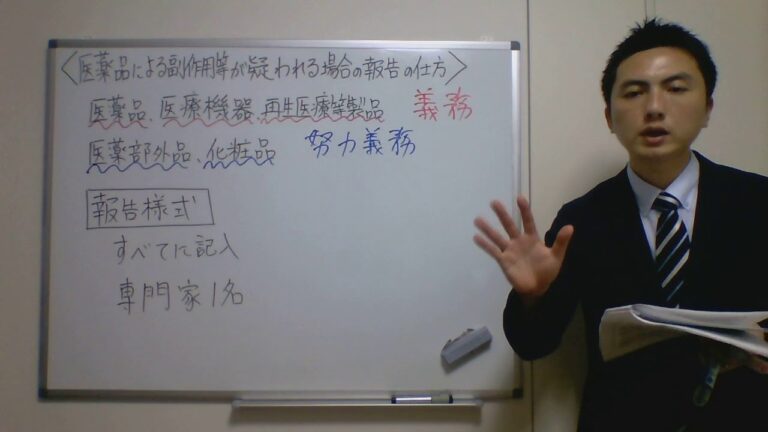 〈医薬品による副作用等が疑われる場合の報告の仕方〉
医薬品、医療機器、再生医療等製品 義務
医薬部外品、化粧品 努力義務
報告様式
すべてに記入
専門家1名